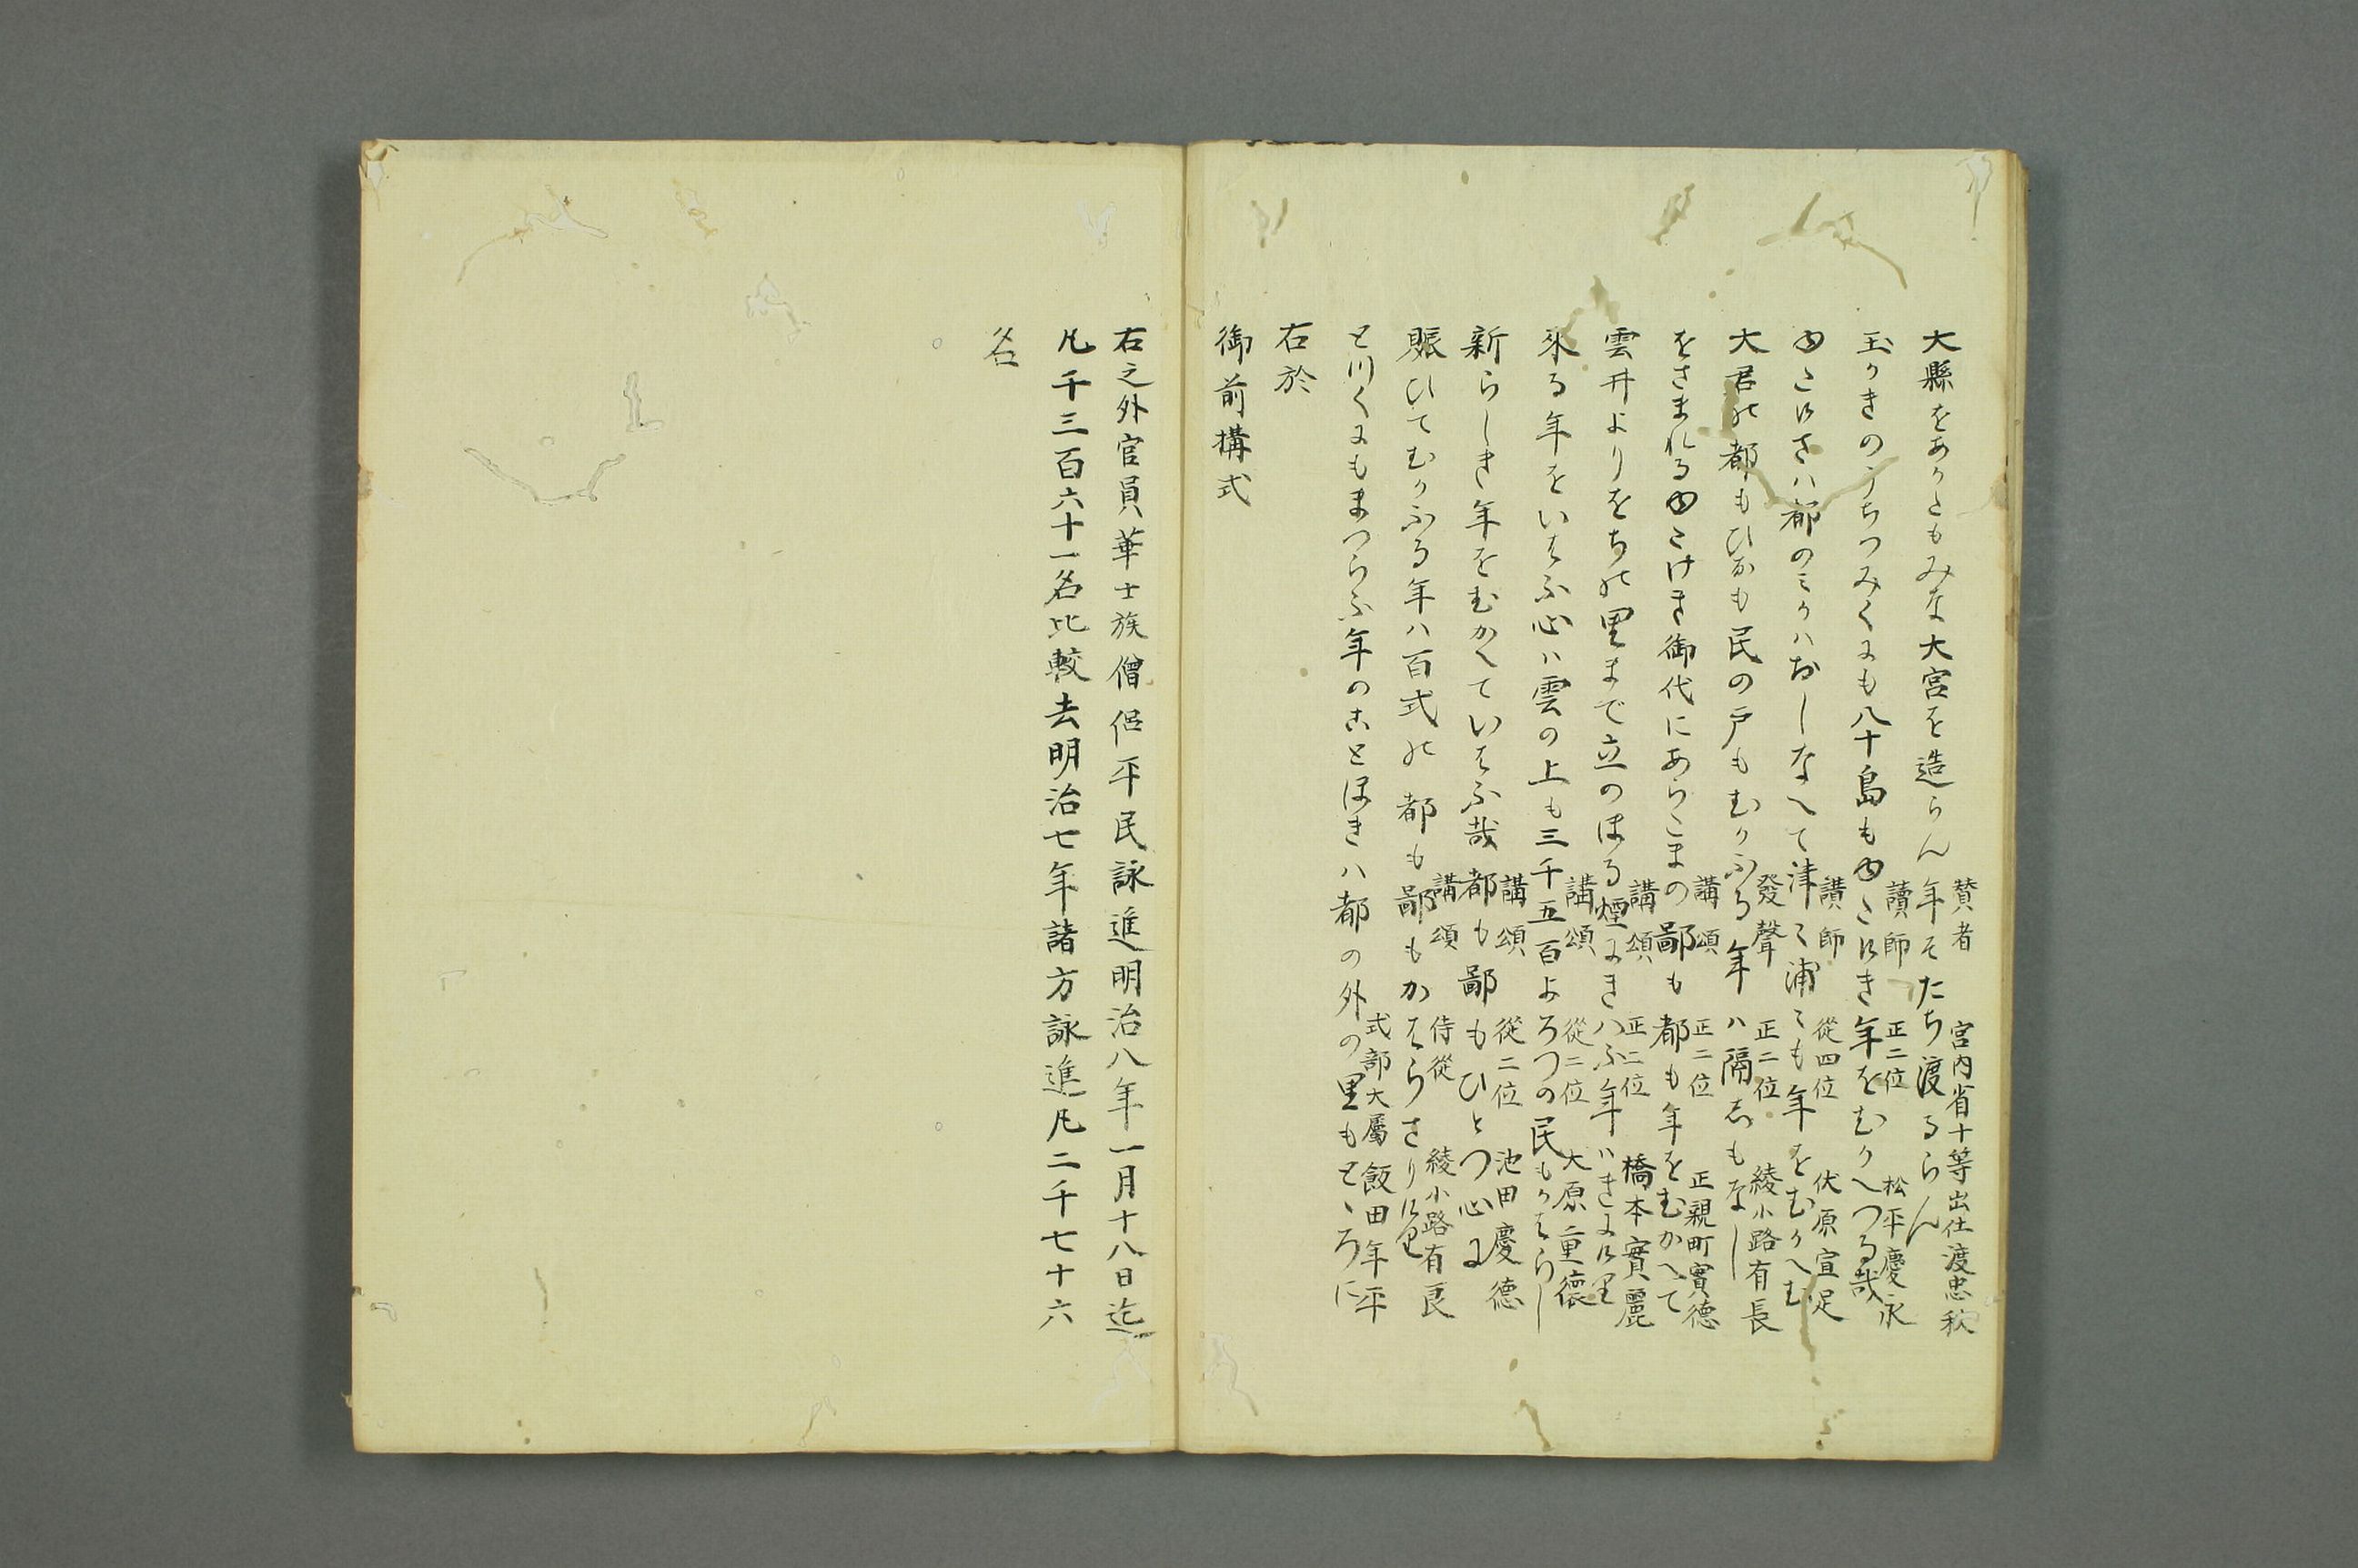 賛者 宮内省十等出仕渡忠秋
大縣をあかたもみな大宮を造らん年そたち渡るらん
讀師 正二位 松平慶永
玉かきのうちつみくにも八十島もゆたけき年をむかへつる哉
講師 從四位 伏原宣足
ゆたけさハ都のミかハおしなへて津々浦々も年をむかへむ
發聲 正二位 綾小路有長
大君の都もひなも民の戸もむかふる年ハ隔もなし
講頌 正二位 正親町實德
をさまれるゆたけき御代にあらたまの鄙も都も年をむかへて
講頌 正二位 橋本實麗
雲井よりをちの里まで立のほる煙にきハふ年ハきにけり
講頌 從二位 大原重德
來る年をいはふ心ハ雲の上も三千五百よろつの民もかはらし
講頌 從二位 池田慶德
新らしき年をむかへていはふ哉都も鄙もひとつ心に
講頌 侍從 綾小路有良
賑ひてむかふる年ハ百式の都も鄙もかはらさりけり
式部大屬 飯田年平
とつくにもまつらふ年のことほきハ都の外の里もとゝろに
右於
御前構式
右之外官員華士族僧侶平民詠進明治八年一月十八日迄
凡千三百六十一名比較去明治七年諸方詠進凡二千七十六
名